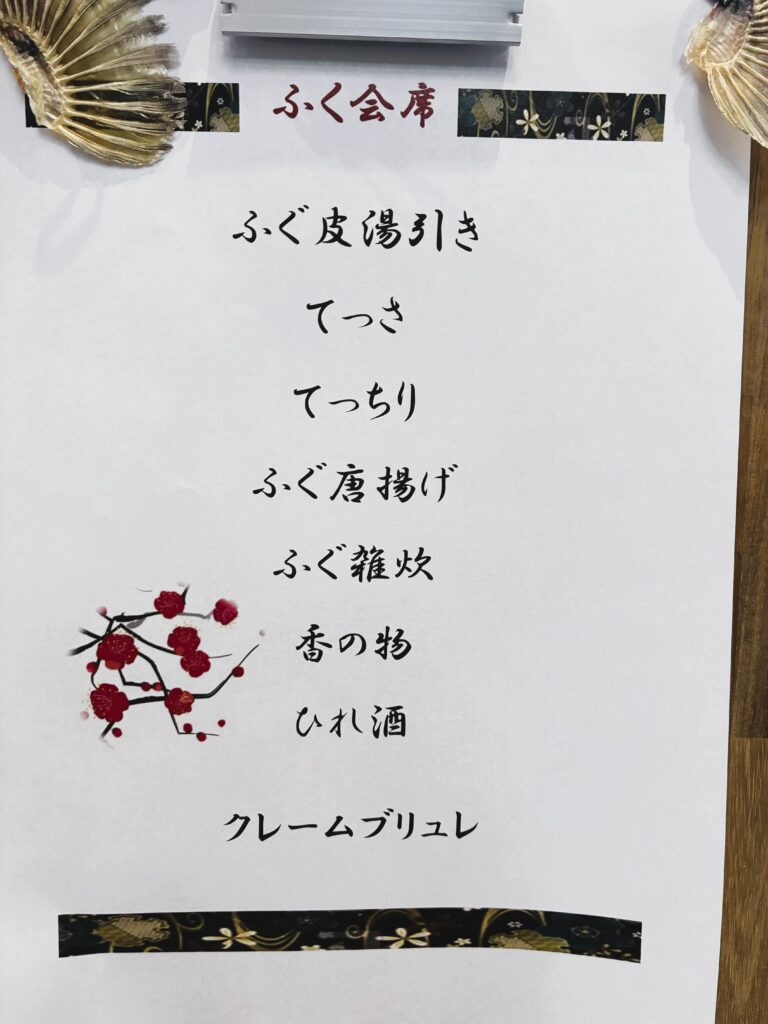 ふく会席
ふぐ皮湯引き
てっさ
てっちり
ふぐ唐揚げ
ふぐ雑炊
香の物
ひれ酒
クレームブリュレ